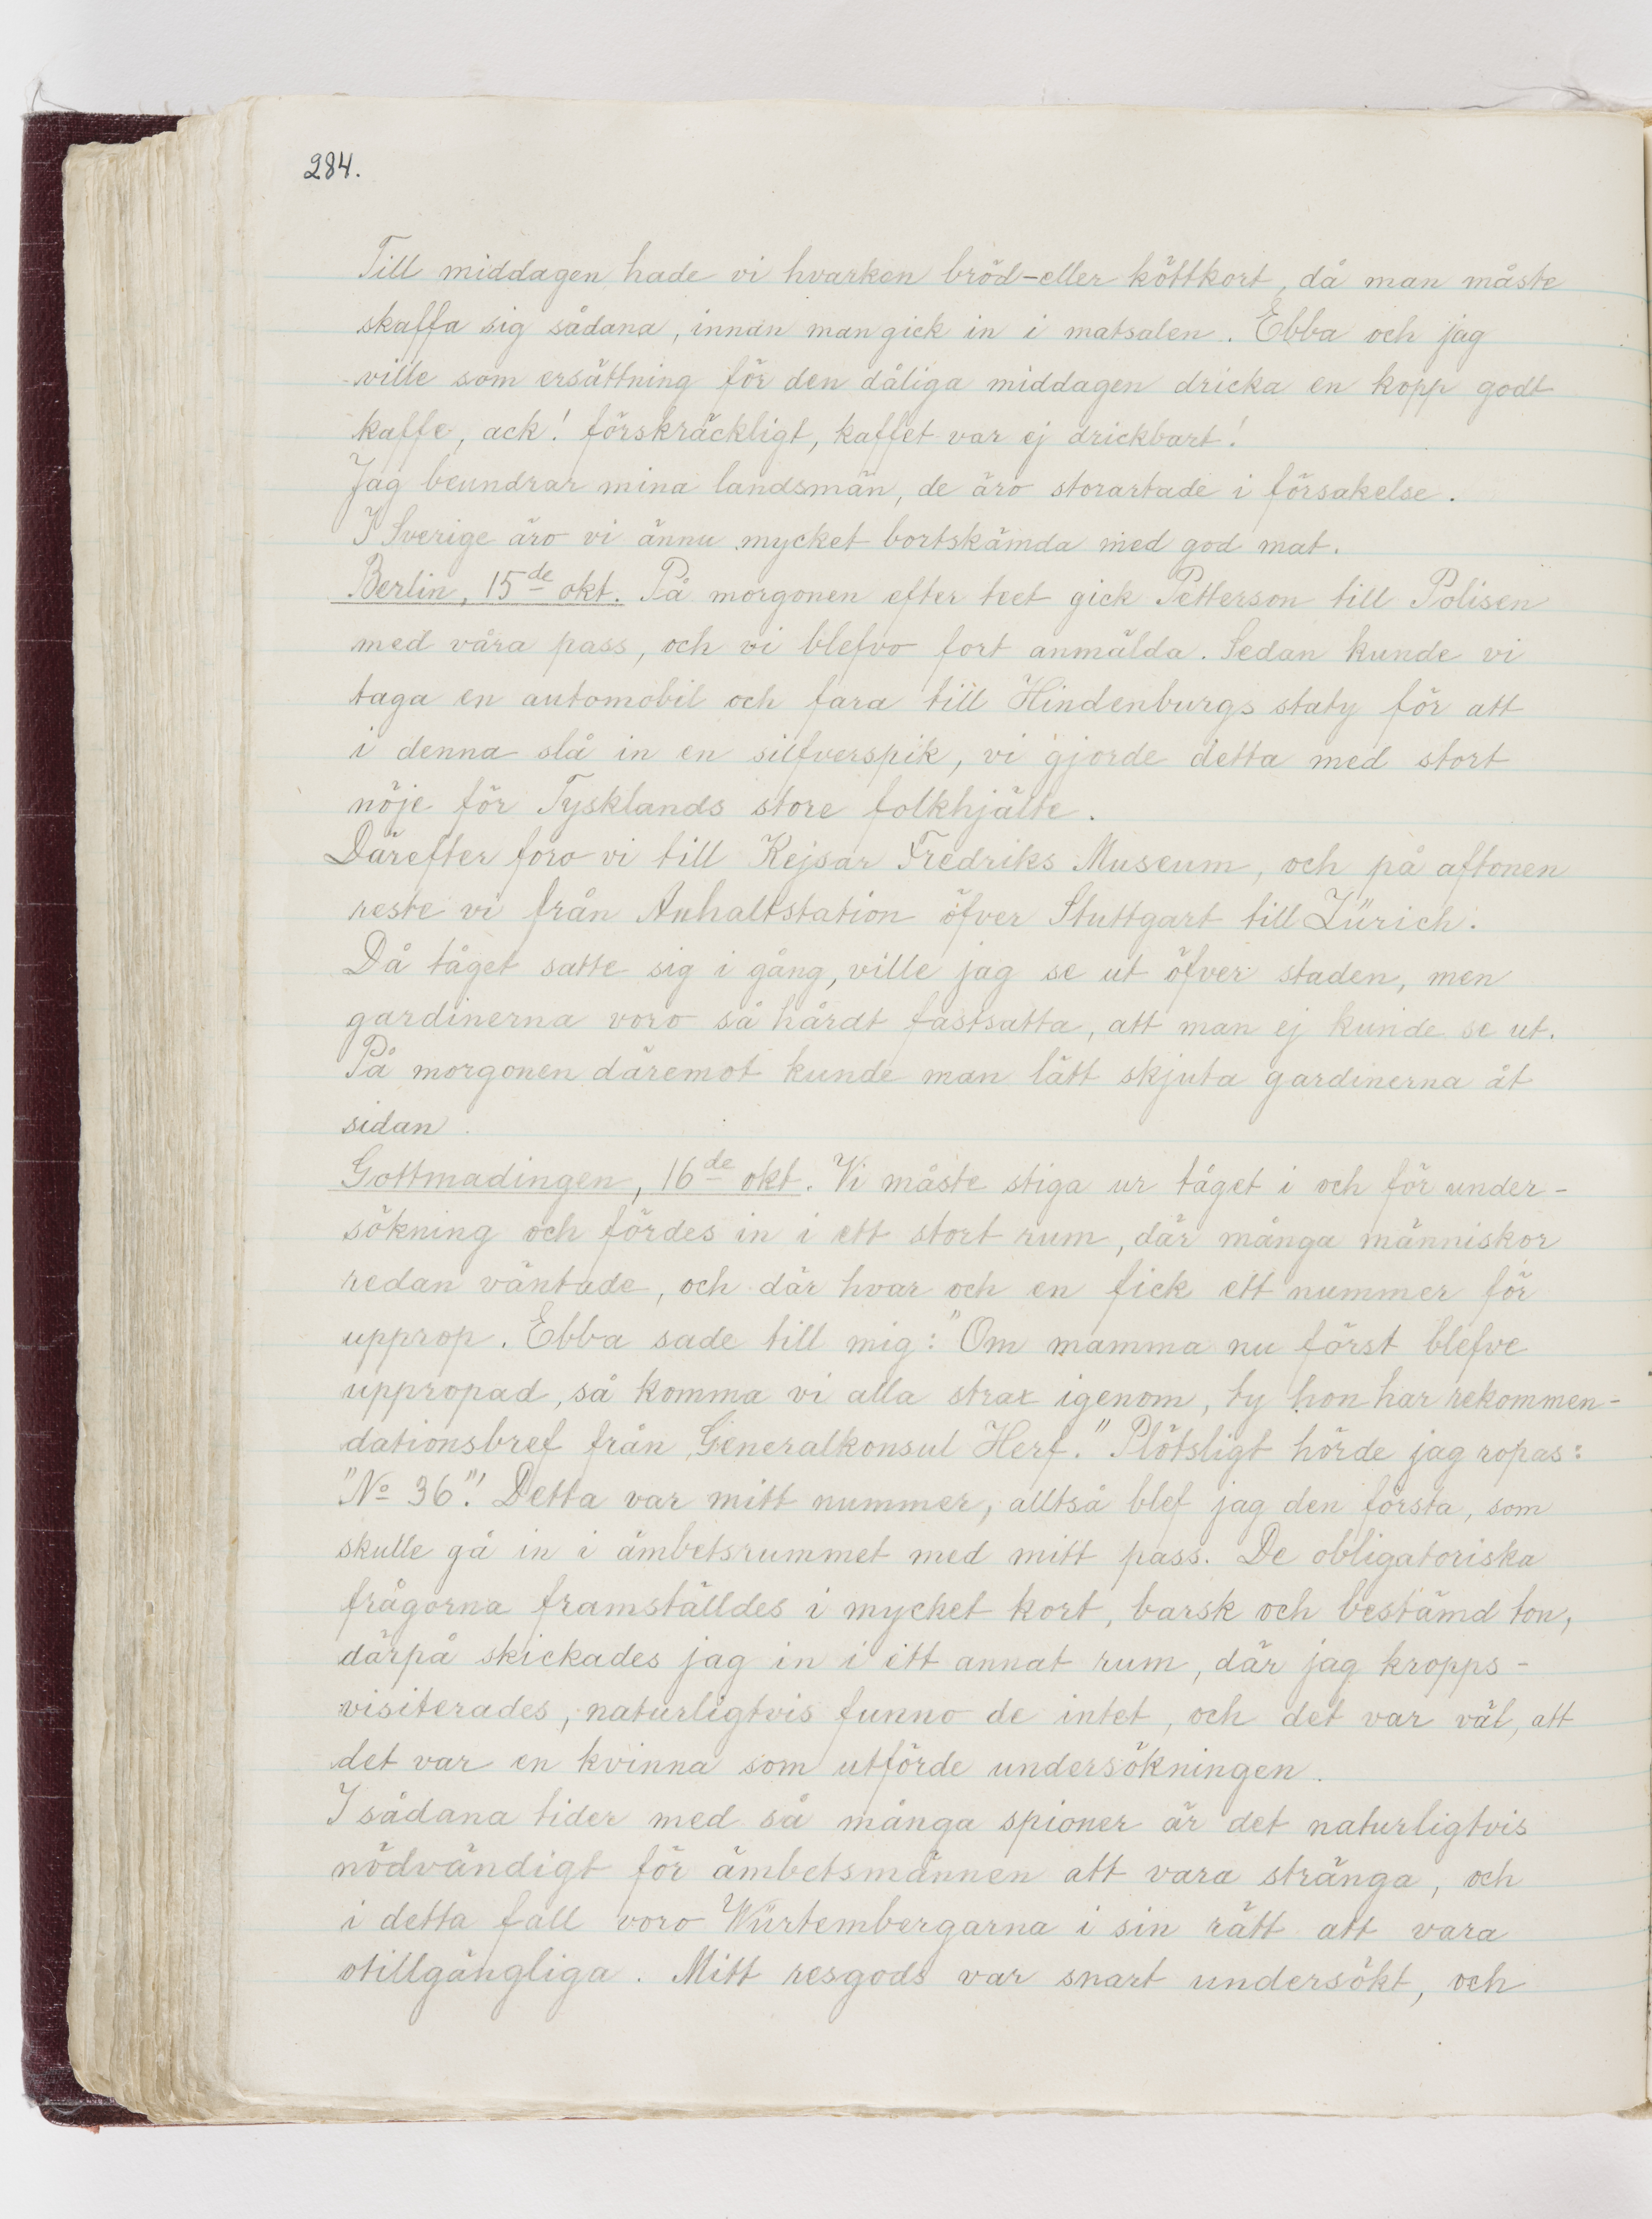 284.
Till middagen hade vi hvarken bröd-eller köttkort, då man måste
skaffa sig sådana, innan man gick in i matsalen. Ebba och jag
ville som ersättning för den dåliga middagen dricka en kopp godt
kaffe, ack! förskräckligt, kaffet var ej drickbart!
Jag beundrar mina landsmän, de äro storartade i försakelse.
I Sverige äro vi ännu mycket bortskämda med god mat.
Berlin, 15de okt. På morgonen efter teet gick Petterson till Polisen
med våra pass, och vi blefvo fort anmälda. Sedan kunde vi
taga en automobil och fara till Hindenburgs staty för att
i denna slå in en silfverspik, vi gjorde detta med stort
nöje för Tysklands store folkhjälte.
Därefter foro vi till Kejsar Fredriks Museum, och på aftonen
reste vi från Anhaltstation öfver Stuttgart till Zürich.
Då tåget satte sig i gång, ville jag se ut öfver staden, men
gardinerna voro så hårdt fastsatta, att man ej kunde se ut.
På morgonen däremot kunde man lätt skjuta gardinerna åt
sidan.
Gottmadingen, 16de okt. Vi måste stiga ur tåget i och för under-
sökning och fördes in i ett stort rum, där många människor
redan väntade, och där hvar och en fick ett nummer för
upprop. Ebba sade till mig: "Om mamma nu först blefve
uppropad, så komma vi alla strax igenom, ty hon har rekommen-
dationsbref från Generalkonsul Herf." Plötsligt hörde jag ropas:
"No 36"! Detta var mitt nummer, alltså blef jag den första, som
skulle gå in i ämbetsrummet med mitt pass. De obligatoriska
frågorna framställdes i mycket kort, barsk och bestämd ton,
därpå skickades jag in i ett annat rum, där jag kropps-
visiterades, naturligtvis funno de intet, och det var väl, att
det var en kvinna som utförde undersökningen.
I sådana tider med så många spioner är det naturligtvis
nödvändigt för ämbetsmännen att vara stränga, och
i detta fall voro Würtembergarna i sin rätt att vara
otillgängliga. Mitt resgods var snart undersökt, och